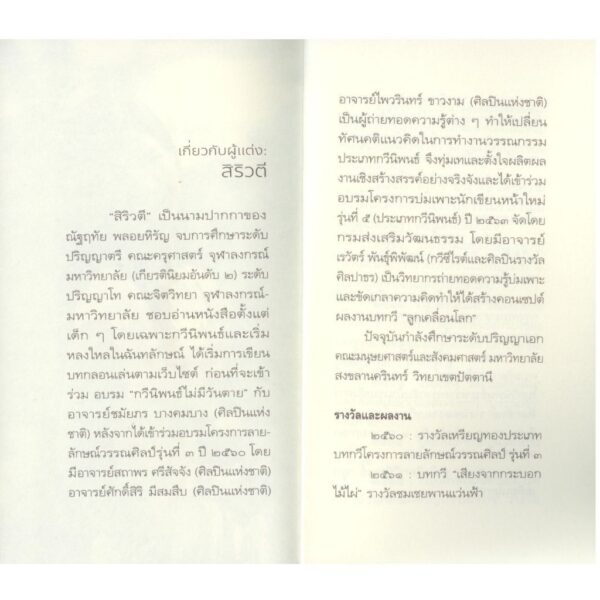 เกี่ยวกับผู้แต่ง:
สิริวตี
"สิริวตี" เป็นนามปากกาของ
ณัฐฤทัย พลอยหิรัญ จบการศึกษาระดับ
ปริญญาตรี คณะครุศาสตร์ จุฬาลงกรณ์
มหาวิทยาลัย (เกียรตินิยมอันดับ ๒) ระดับ
ปริญญาโท คณะจิตวิทยา จุฬาลงกรณ์-
มหาวิทยาลัย ชอบอ่านหนังสือตั้งแต่
เด็ก ๆ โดยเฉพาะกวีนิพนธ์และเริ่ม
หลงใหลในฉันทลักษณ์ ได้เริ่มการเขียน
บทกลอนเล่นตามเว็บไซต์ ก่อนที่จะเข้า
ร่วม อบรม "กวีนิพนธ์ไม่มีวันตาย" กับ
อาจารย์ชมัยภร บางคมบาง (ศิลปินแห่ง
ชาติ) หลังจากได้เข้าร่วมอบรมโครงการลาย-
ลักษณ์วรรณศิลป์รุ่นที่ ๓ ปี ๒๕๖๐ โดย
มีอาจารย์สถาพร ศรีสัจจัง (ศิลปินแห่งชาติ)
อาจารย์ศักดิ์สิริ มีสมสืบ (ศิลปินแห่งชาติ)
อาจารย์ไพวรินทร์ ขาวงาม (ศิลปินแห่งชาติ)
เป็นผู้ถ่ายทอดความรู้ต่าง ๆ ทำให้เปลี่ยน
ทัศนคติแนวคิดในการทำงานวรรณกรรม
ประเภทกวีนิพนธ์ จึงทุ่มเทและตั้งใจผลิตผล
งานเชิงสร้างสรรค์อย่างจริงจังและได้เข้าร่วม
อบรมโครงการบ่มเพาะนักเขียนหน้าใหม่
รุ่นที่ ๕ (ประเภทกวีนิพนธ์) ปี ๒๕๖๓ จัดโดย
กรมส่งเสริมวัฒนธรรม โดยมีอาจารย์
เรวัตร์ พันธุ์พิพัฒน์ (กวีซีไรต์และศิลปินรางวัล
ศิลปาธร) เป็นวิทยากรถ่ายทอดความรู้บ่มเพาะ
และขัดเกลาความคิดทำให้ได้สร้างคอนเซปต์
ผลงานบทกวี "ลูกเคลื่อนโลก"
ปัจจุบันกำลังศึกษาระดับปริญญาเอก
คณะมนุษยศาสตร์และสังคมศาสตร์ มหาวิทยาลัย
สงขลานครินทร์ วิทยาเขตปัตตานี
รางวัลและผลงาน
๒๕๖๐ : รางวัลเหรียญทองประเภท
บทกวีโครงการลายลักษณ์วรรณศิลป์ รุ่นที่ ๓
๒๕๖๑ : บทกวี "เสียงจากกระบอก
ไม้ไผ่" รางวัลชมเชยพานแว่นฟ้า